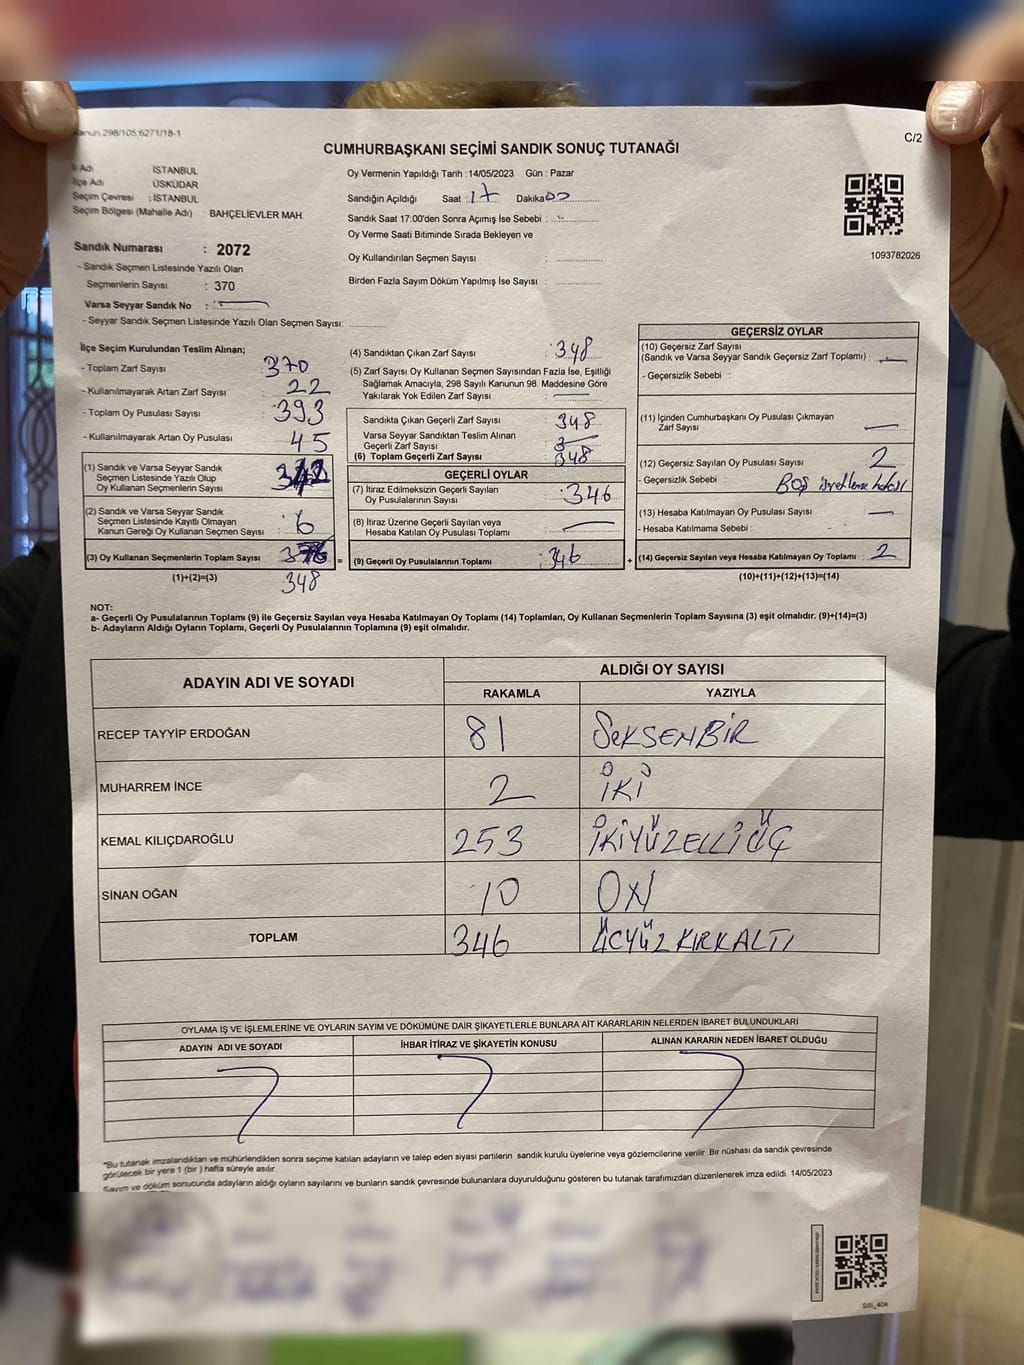 Kanun.298/105,6271/18-1
C/2
CUMHURBAŞKANI SEÇİMİ SANDIK SONUÇ TUTANAĞI
İl Adı İSTANBUL
İlçe Adı ÜSKÜDAR
Seçim Çevresi : İSTANBUL
Seçim Bölgesi (Mahalle Adı) : BAHÇELİEVLER MAH.
Sandık Numarası : 2072
- Sandık Seçmen Listesinde Yazılı Olan
Seçmenlerin Sayısı : 370
Varsa Seyyar Sandık No :
- Seyyar Sandık Seçmen Listesinde Yazılı Olan Seçmen Sayısı:
Oy Vermenin Yapıldığı Tarih : 14/05/2023 Gün : Pazar
Sandığın Açıldığı Saat 17 Dakika 00
Sandık Saat 17:00'den Sonra Açımış İse Sebebi :
Oy Verme Saati Bitiminde Sırada Bekleyen ve
Oy Kullandırılan Seçmen Sayısı :
Birden Fazla Sayım Döküm Yapılmış İse Sayısı :
1093782026
İlçe Seçim Kurulundan Teslim Alınan;
- Toplam Zarf Sayısı 370
- Kullanılmayarak Artan Zarf Sayısı : 22
- Toplam Oy Pusulası Sayısı : 393
- Kullanılmayarak Artan Oy Pusulası : 45
(1) Sandık ve Varsa Seyyar Sandık
Seçmen Listesinde Yazılı Olup
Oy Kullanan Seçmenlerin Sayısı : 342
(2) Sandık ve Varsa Seyyar Sandık
Seçmen Listesinde Kayıtlı Olmayan
Kanun Gereği Oy Kullanan Seçmen Sayısı : 6
(3) Oy Kullanan Seçmenlerin Toplam Sayısı
(1)+(2)=(3) 348
(4) Sandıktan Çıkan Zarf Sayısı : 348
(5) Zarf Sayısı Oy Kullanan Seçmen Sayısından Fazla İse, Eşitliği
Sağlamak Amacıyla, 298 Sayılı Kanunun 98. Maddesine Göre
Yakılarak Yok Edilen Zarf Sayısı :
Sandıkta Çıkan Geçerli Zarf Sayısı : 348
Varsa Seyyar Sandıktan Teslim Alınan
Geçerli Zarf Sayısı :
(6) Toplam Geçerli Zarf Sayısı : 348
GEÇERLİ OYLAR
(7) İtiraz Edilmeksizin Geçerli Sayılan
Oy Pusulalarının Sayısı : 346
(8) İtiraz Üzerine Geçerli Sayılan veya
Hesaba Katılan Oy Pusulası Toplamı :
= (9) Geçerli Oy Pusulalarının Toplamı : 346 +
GEÇERSİZ OYLAR
(10) Geçersiz Zarf Sayısı
(Sandık ve Varsa Seyyar Sandık Geçersiz Zarf Toplamı) :
- Geçersizlik Sebebi :
(11) İçinden Cumhurbaşkanı Oy Pusulası Çıkmayan
Zarf Sayısı :
(12) Geçersiz Sayılan Oy Pusulası Sayısı : 2
- Geçersizlik Sebebi : Boş işretleme hatası
(13) Hesaba Katılmayan Oy Pusulası Sayısı :
- Hesaba Katılmama Sebebi :
(14) Geçersiz Sayılan veya Hesaba Katılmayan Oy Toplamı : 2
(10)+(11)+(12)+(13)=(14)
NOT:
a- Geçerli Oy Pusulalarının Toplamı (9) ile Geçersiz Sayılan veya Hesaba Katılmayan Oy Toplamı (14) Toplamları, Oy Kullanan Seçmenlerin Toplam Sayısına (3) eşit olmalıdır. (9)+(14)=(3)
b- Adayların Aldığı Oyların Toplamı, Geçerli Oy Pusulalarının Toplamına (9) eşit olmalıdır.
ADAYIN ADI VE SOYADI ALDIĞI OY SAYISI
RAKAMLA YAZIYLA
RECEP TAYYİP ERDOĞAN 81 SEKSENBİR
MUHARREM İNCE 2 İKİ
KEMAL KILIÇDAROĞLU 253 İKİYÜZELLİÜÇ
SİNAN OĞAN 10 ON
TOPLAM 346 ÜÇYÜZ KIRKALTI
OYLAMA İŞ VE İŞLEMLERİNE VE OYLARIN SAYIM VE DÖKÜMÜNE DAİR ŞİKAYETLERLE BUNLARA AİT KARARLARIN NELERDEN İBARET BULUNDUKLARI
ADAYIN ADI VE SOYADI İHBAR İTİRAZ VE ŞİKAYETİN KONUSU ALINAN KARARIN NEDEN İBARET OLDUĞU
*Bu tutanak imzalandıktan ve mühürlendikten sonra seçime katılan adayların ve talep eden siyasi partilerin sandık kurulu üyelerine veya gözlemcilerine verilir. Bir nüshası da sandık çevresinde
görülecek bir yere 1 (bir) hafta süreyle asılır.
Sayım ve döküm sonucunda adayların aldığı oyların sayılarını ve bunların sandık çevresinde bulunanlara duyurulduğunu gösteren bu tutanak tarafımızdan düzenlenerek imza edildi. 14/05/2023
SSI_404